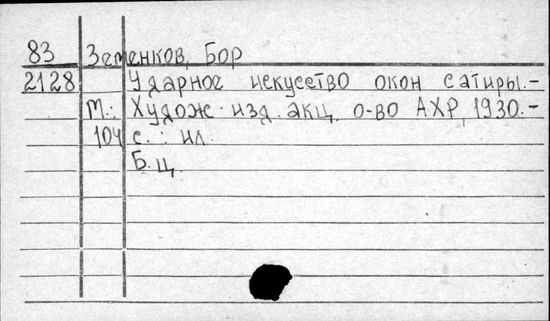 83 Земенков, Бор
2128 Ударное искусство окон сатиры.-
М.: Худож. изд. акц. о-во АХР, 1930.-
104 с.: ил.
Б.ц.